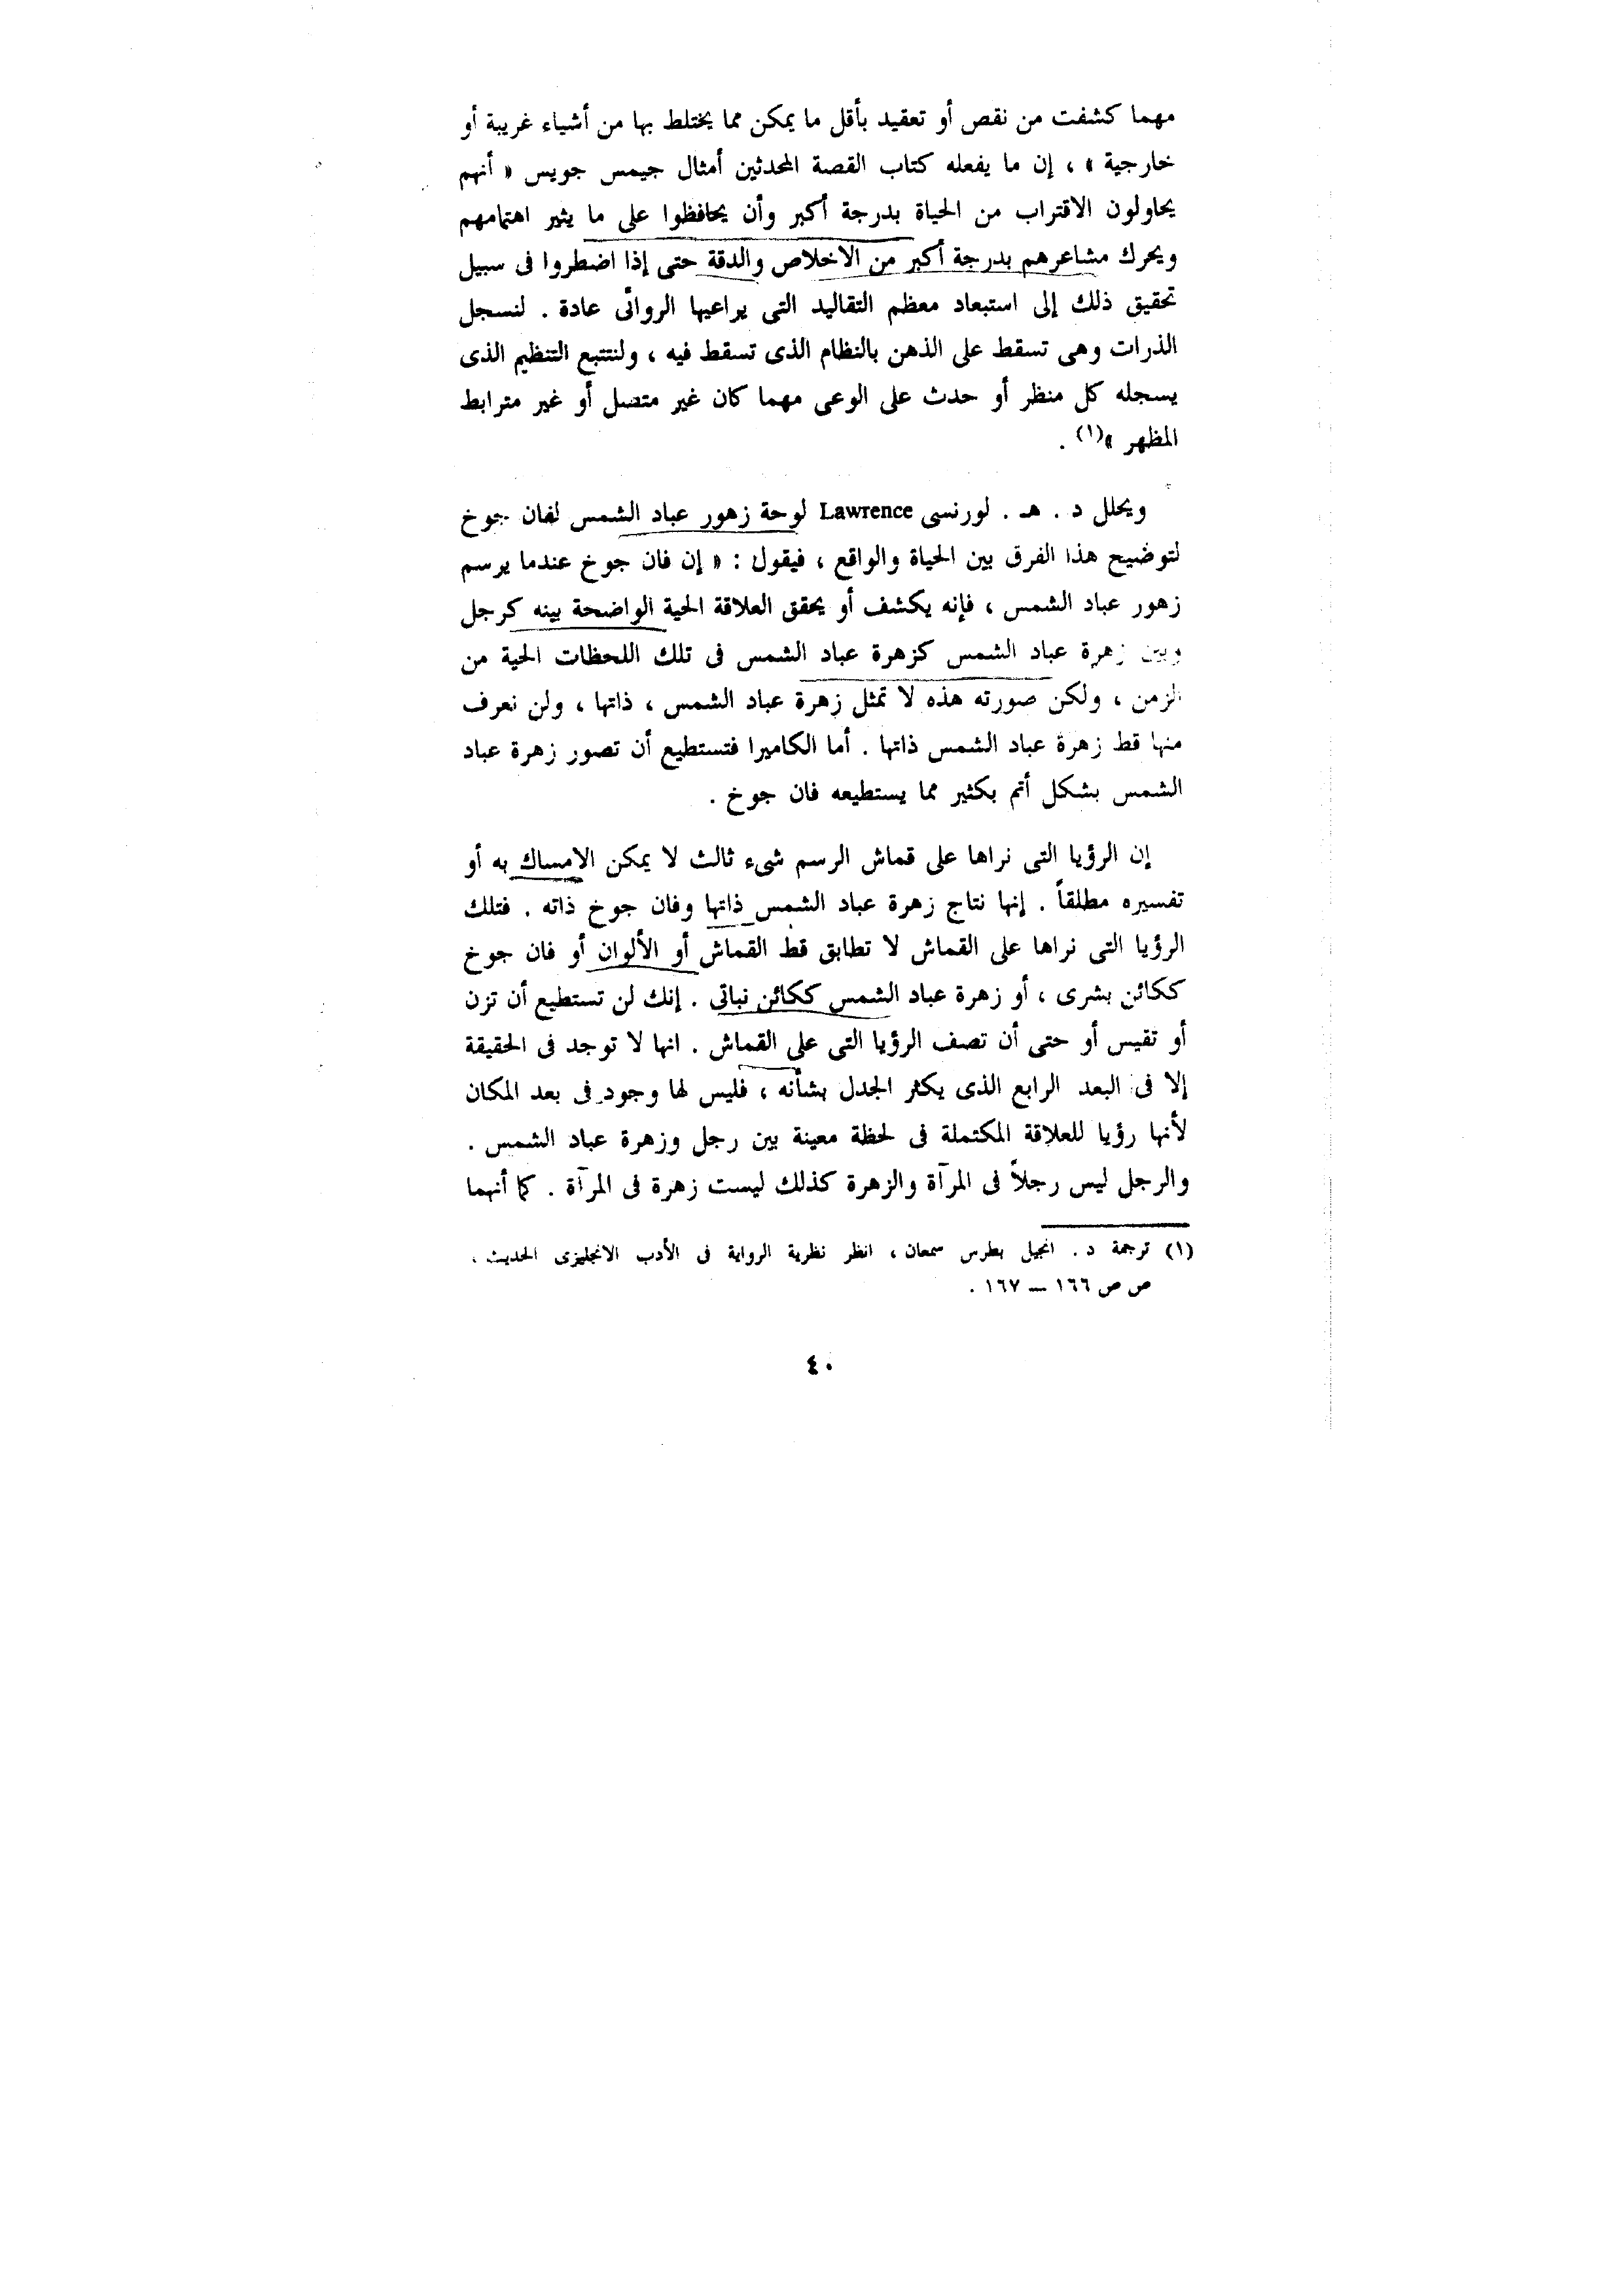 مهما كشفت من نقص أو تعقيد بأقل ما يمكن مما يختلط بها من أشياء غريبة أو
خارجية » ، إن ما يفعله كتاب القصة المحدثين أمثال جيمس جويس « أنهم
يحاولون الاقتراب من الحياة بدرجة أكبر وأن يحافظوا على ما يثير اهتمامهم
ويحرك مشاعرهم بدرجة أكبر من الاخلاص والدقة حتى إذا اضطروا فى سبيل
تحقيق ذلك إلى استبعاد معظم التقاليد التى يراعيها الروائى عادة . لنسجل
الذرات وهى تسقط على الذهن بالنظام الذى تسقط فيه ، ولنتتبع التنظيم الذى
يسجله كل منظر أو حدث على الوعى مهما كان غير متصل أو غير مترابط
المظهر »(١) .
ويحلل د . هـ . لورنسى Lawrence لوحة زهور عباد الشمس لفان جوخ
لتوضيح هذا الفرق بين الحياة والواقع ، فيقول : « إن فان جوخ عندما يرسم
زهور عباد الشمس ، فإنه يكشف أو يحقق العلاقة الحية الواضحة بينه كرجل
وبين زهرة عباد الشمس كزهرة عباد الشمس فى تلك اللحظات الحية من
الزمن ، ولكن صورته هذه لا تمثل زهرة عباد الشمس ، ذاتها ، ولن نعرف
منها قط زهرة عباد الشمس ذاتها . أما الكاميرا فتستطيع أن تصور زهرة عباد
الشمس بشكل أتم بكثير مما يستطيعه فان جوخ .
إن الرؤيا التى نراها على قماش الرسم شىء ثالث لا يمكن الامساك به أو
تفسيره مطلقاً . إنها نتاج زهرة عباد الشمس ذاتها وفان جوخ ذاته . فتلك
الرؤيا التى نراها على القماش لا تطابق قط القماش أو الألوان أو فان جوخ
ككائن بشرى ، أو زهرة عباد الشمس ككائن نباتى . إنك لن تستطيع أن تزن
أو تقيس أو حتى أن تصف الرؤيا التى على القماش . انها لا توجد فى الحقيقة
إلا فى البعد الرابع الذى يكثر الجدل بشأنه ، فليس لها وجود فى بعد المكان
لأنها رؤيا للعلاقة المكتملة فى لحظة معينة بين رجل وزهرة عباد الشمس .
والرجل ليس رجلاً فى المرآة والزهرة كذلك ليست زهرة فى المرآة . كما أنهما
(١) ترجمة د . انجيل بطرس سمعان ، انظر نظرية الرواية فى الأدب الانجليزى الحديث ،
ص ص ١٦٦ — ١٦٧ .
٤٠